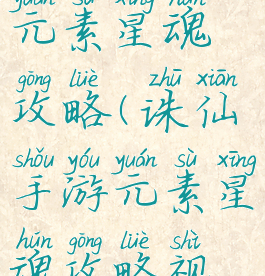 yuán sù xīng hún
元素星魂
gōng lüè zhū xiān
攻略(诛仙
shǒu yóu yuán sù xīng
手游元素星
hún gōng lüè shì
魂攻略视